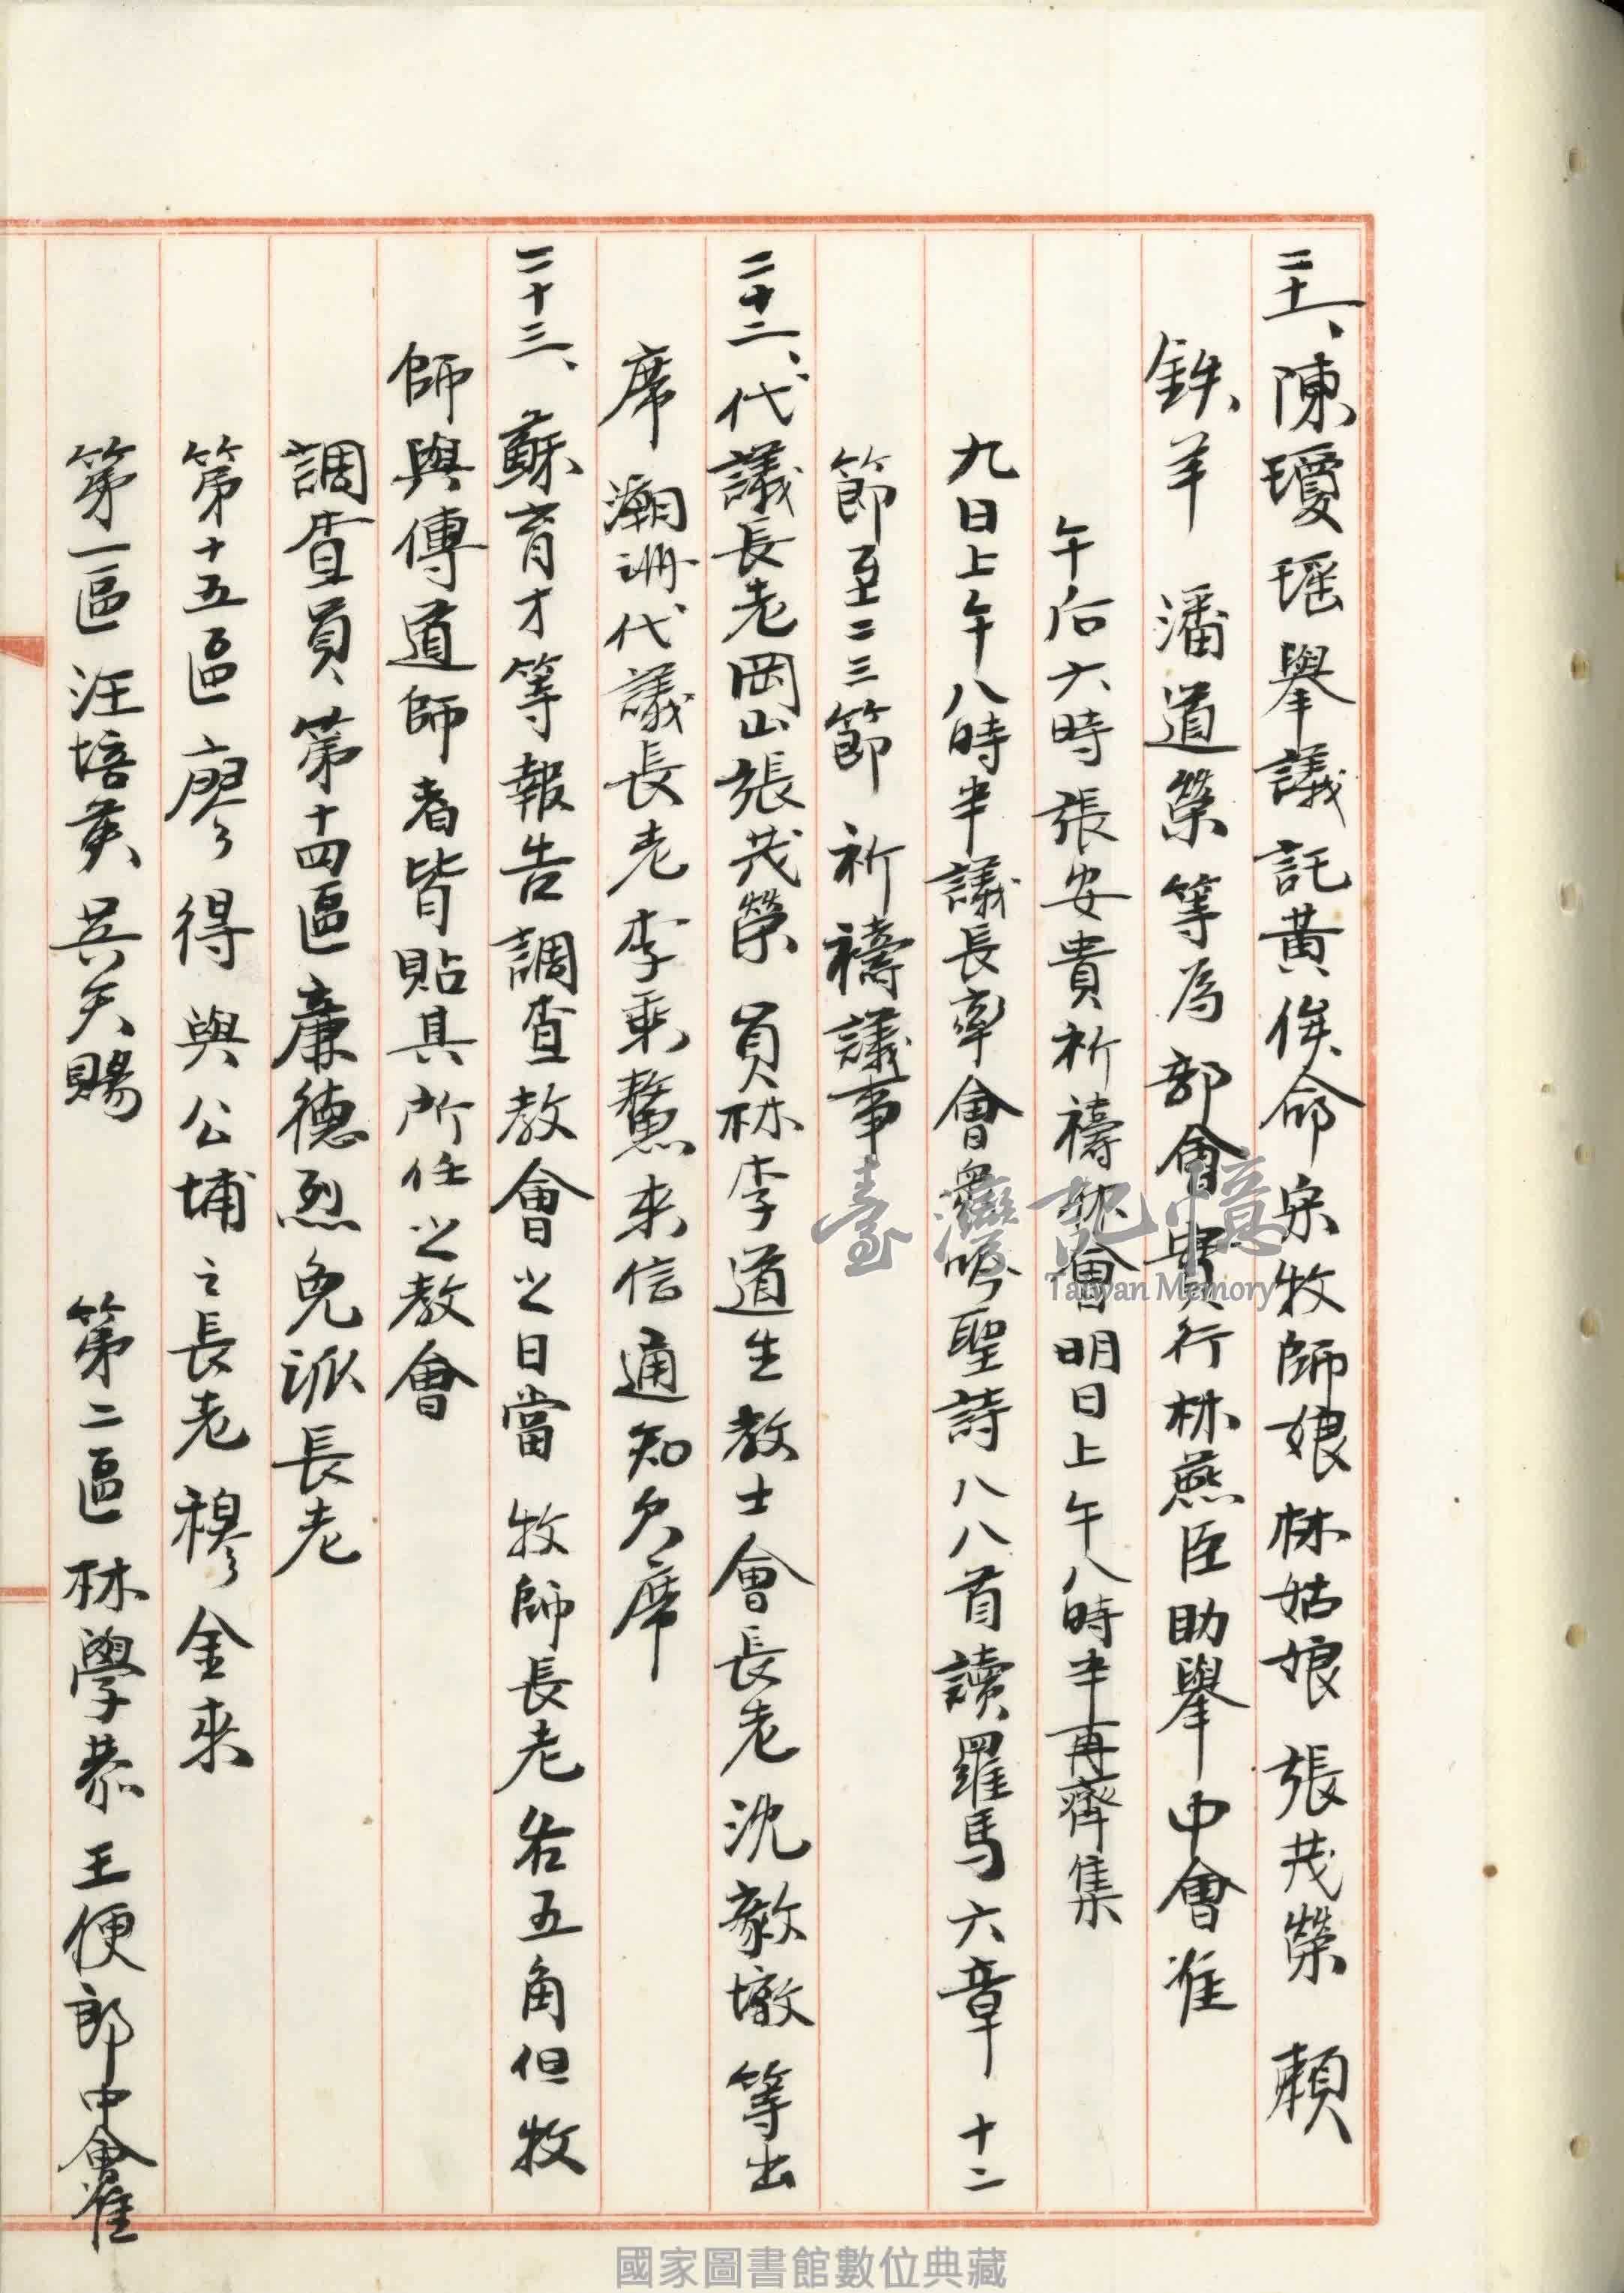 二十一、陳瓊瑤舉議託黃俟命宋牧師娘林姑娘 張茂榮 賴
鉄羊 潘道榮等為部會實行林燕臣助舉中會准
午后六時張安貴祈禱散會明日上午八時半再齊集
九日上午八時半議長率會眾吟聖詩八八首讀羅馬六章 十二
節至二三節 祈禱議事
二十二、代議長老岡山張茂榮 員林李道生教士會長老沈毅墩等出
席 潮洲代議長老李乘鰲來信通知欠席
二十三、蘇育才等報告調查教會之日當 牧師長老各五角但牧
師與傳道師者皆貼其所任之教會
調查員 第十四區廉德烈免派長老
第十五區廖得與公埔之長老穆金來
第一區 汪培英 吳天賜 第二區 林學恭 王便郎中會准
臺灣記憶
Taiwan Memory
國家圖書館數位典藏